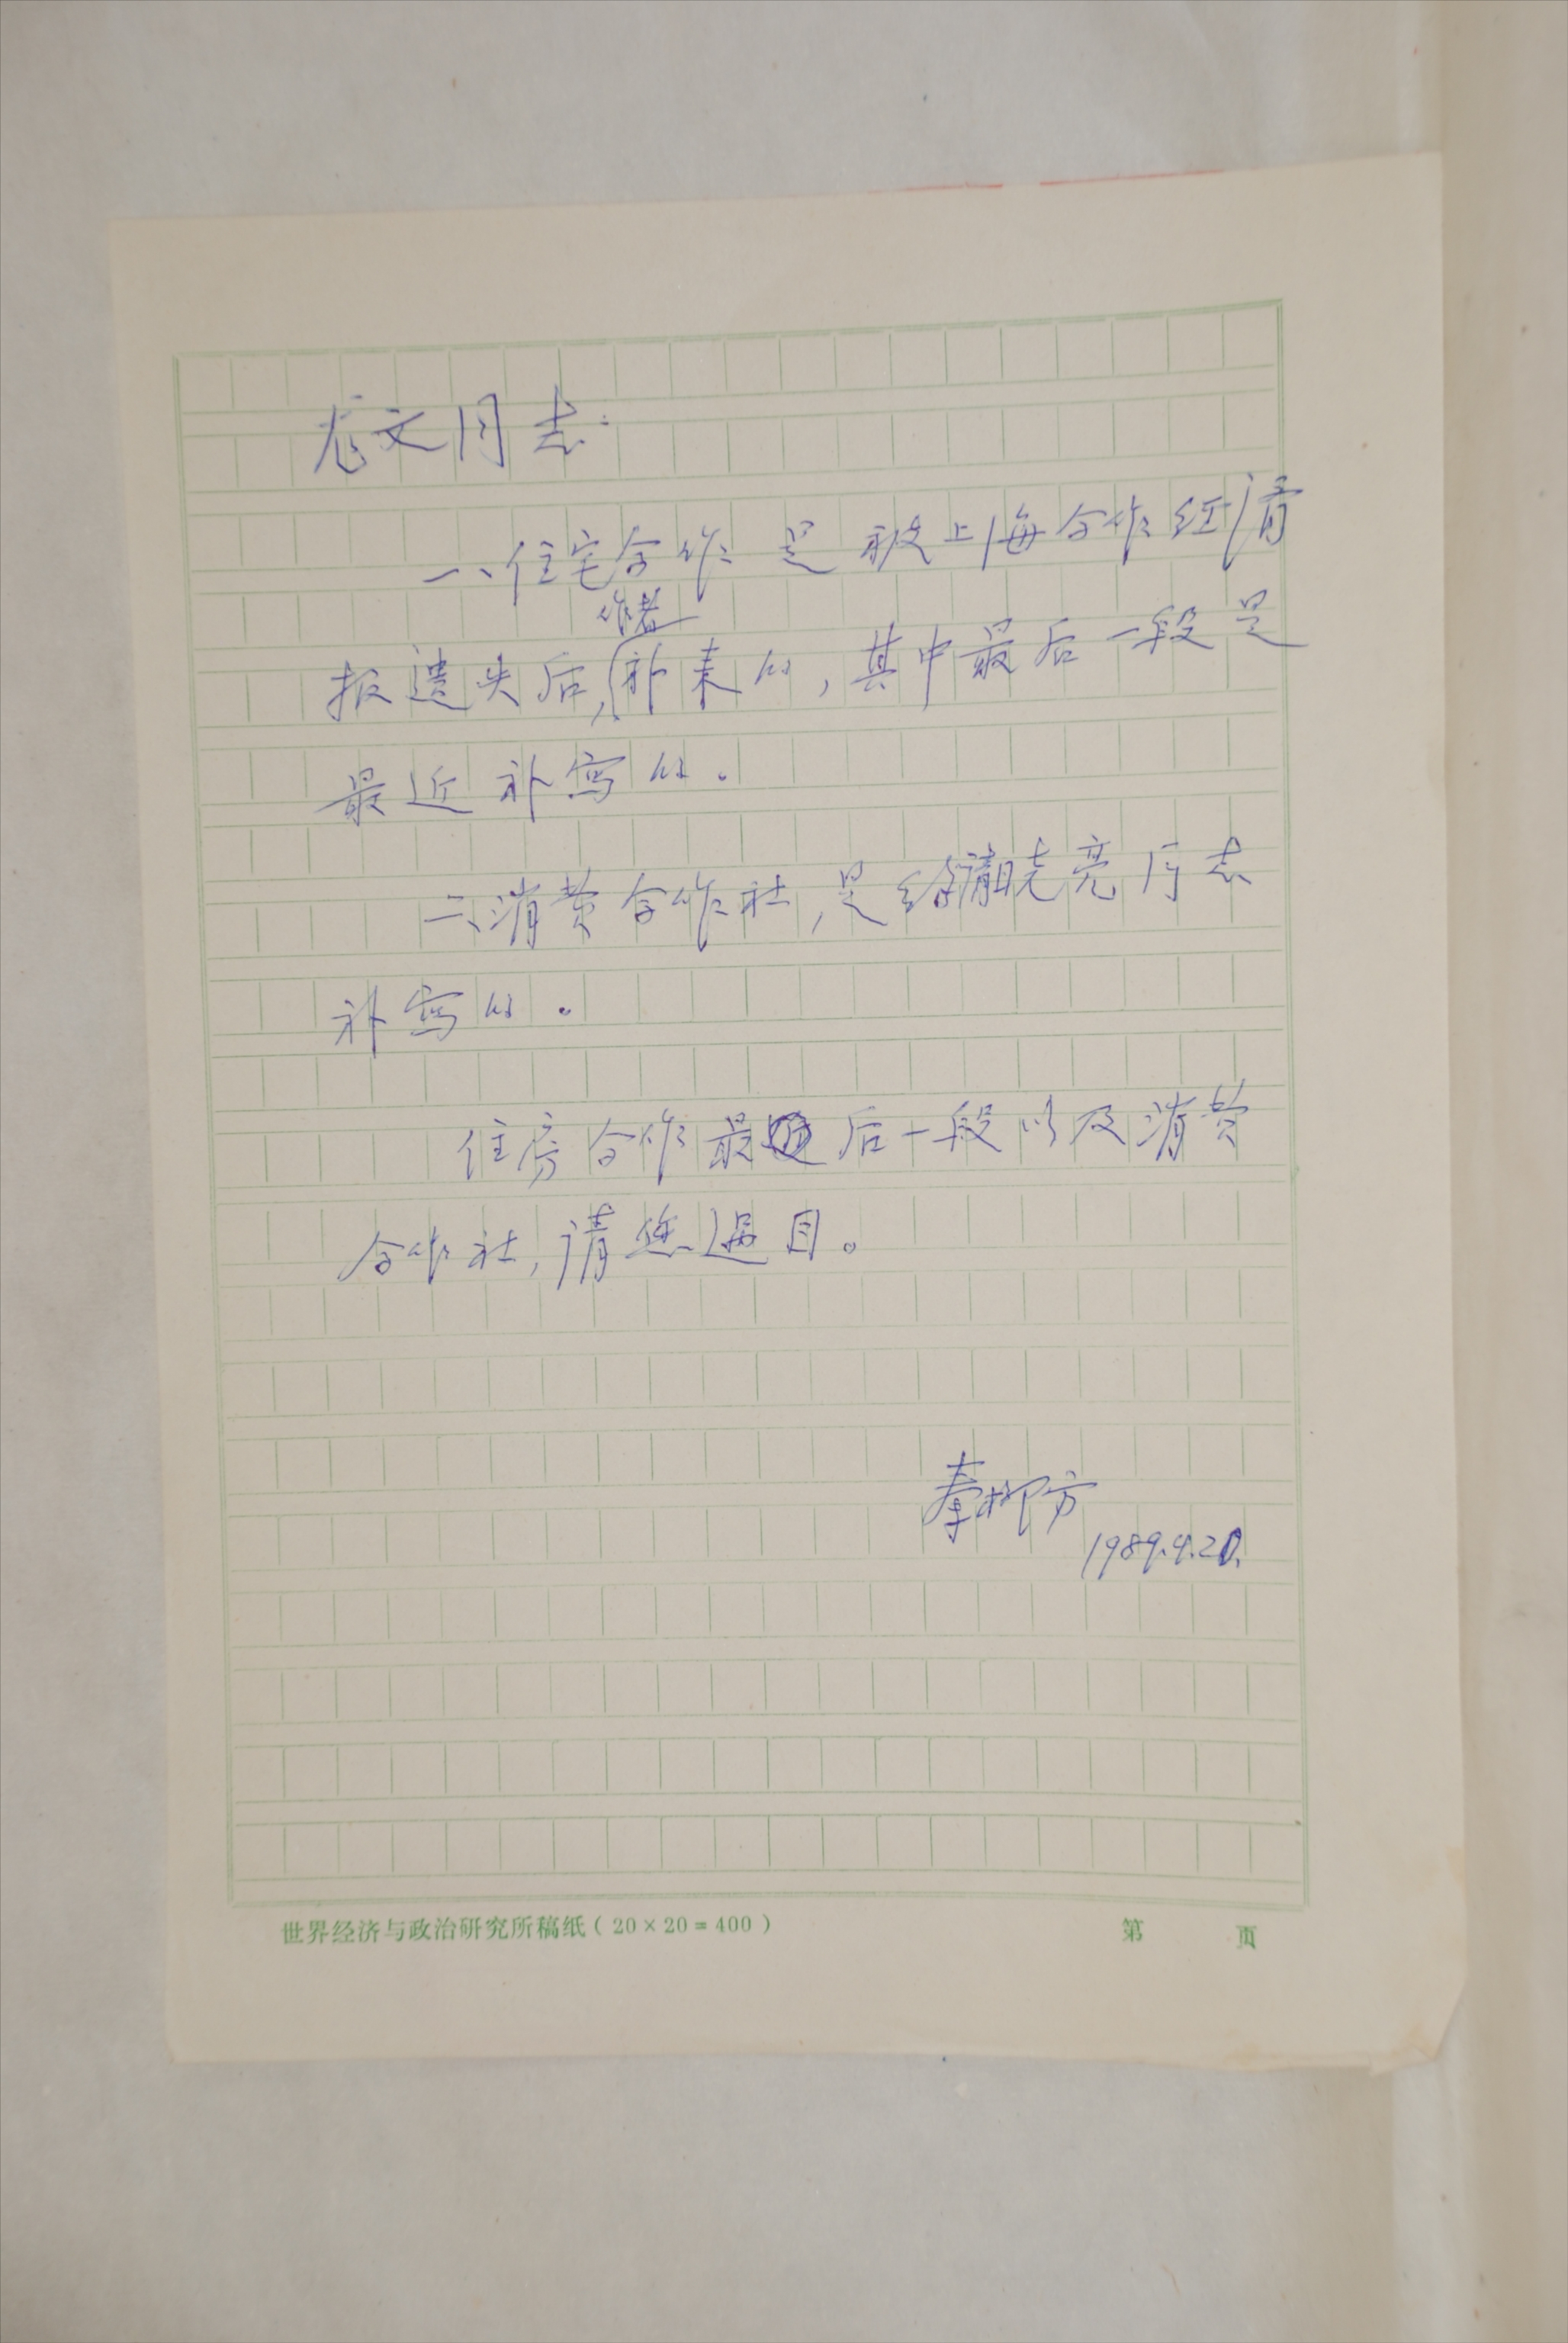 龙文同志:
一、住宅合作是被上海合作经济
作者
报遗失后,补来的,其中最后一段是
最近补写的。
二、消费合作社,是请晓亮同志
补写的。
住房合作最后一段以及消费
合作社,请您过目。
秦柳方
1989.4.20.
世界经济与政治研究所稿纸(20×20=400) 第 页